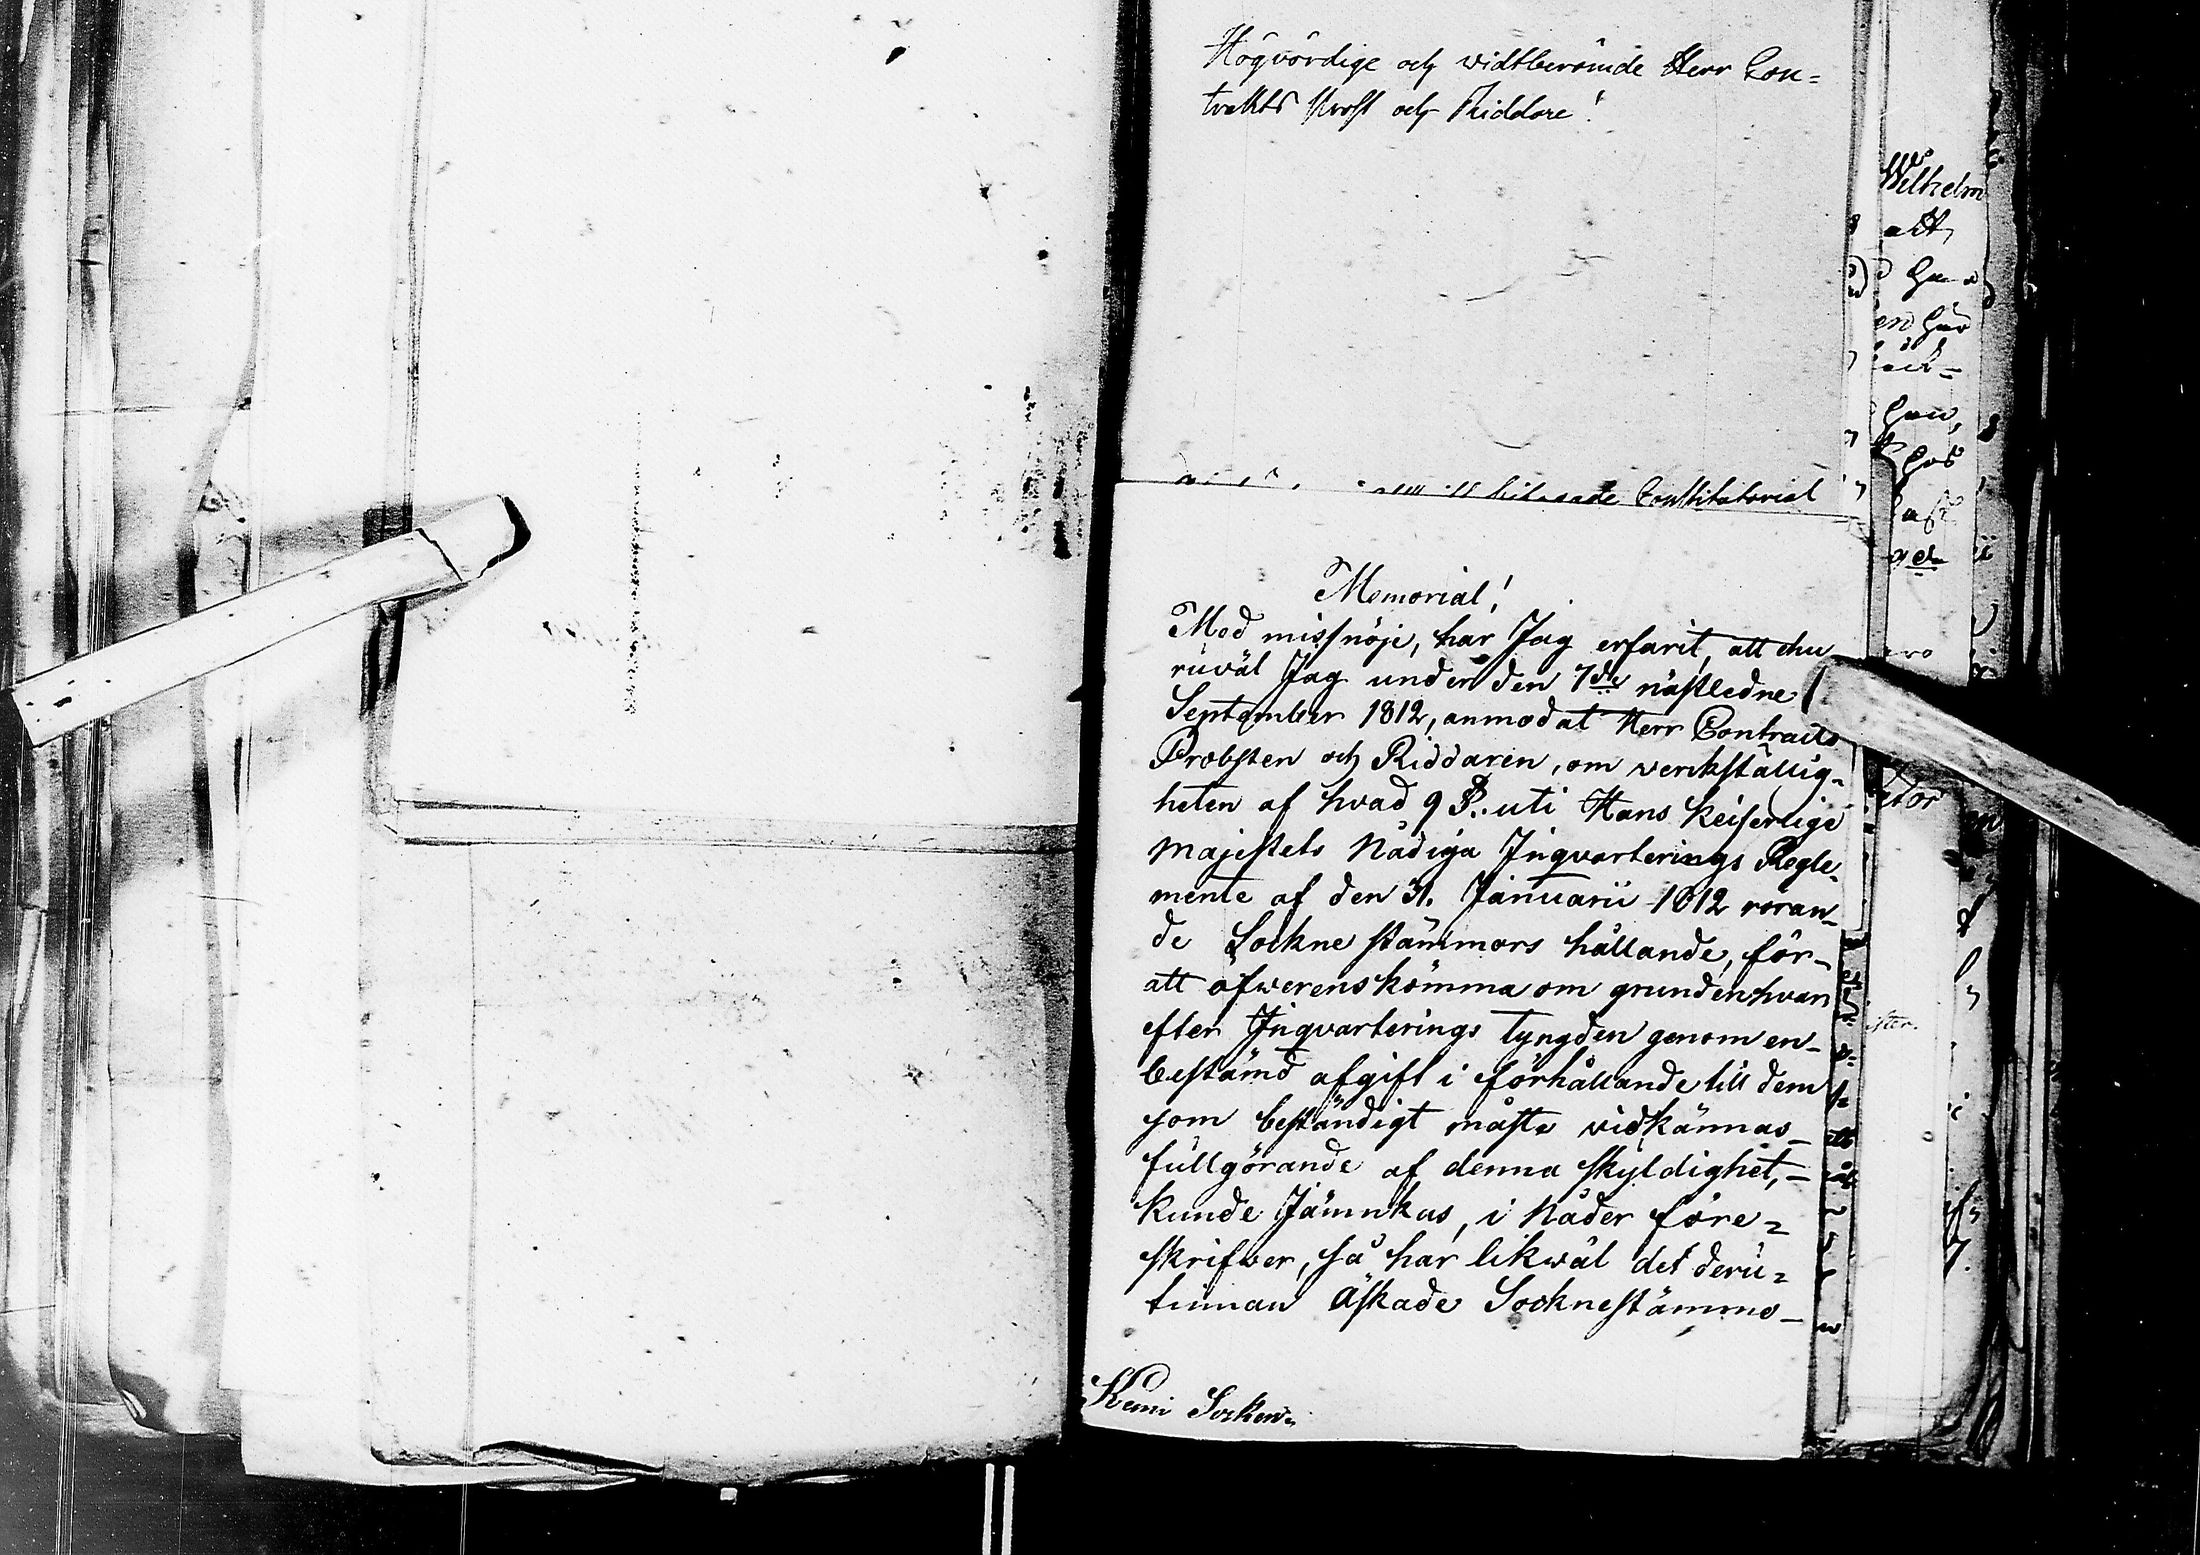 Högvördige och widtberömde Herr Con=
trakts Prost och Riddare!
Constitutorial
Memorial!
Med missnöje, har Jag erfarit, att ehu
ruväl Jag under den 7de nästledne
September 1812, anmodat Herr Contracts
Probsten och Riddaren, om verkställig-
heten af hvad 9 §. uti Hans Keiserlige
Majestets Nådiga Inqvarterings Regle-
mente af den 31. Januarii 1812 röran-
de Sockne stämmors hållande, för-
att öfwerenskomma om grunden hvar
efter Inqvarterings tyngden genom en-
bestämd afgift i förhållande till dem
som beständigt måste vidkännas-
fullgörande af denna skyldighet,-
kunde Jämnkas, i Nåder före=
skrifver, så har likwäl det deru=
tinnan Äskade Socknestämmo-
Kemi Socken.
Wilhelm
att